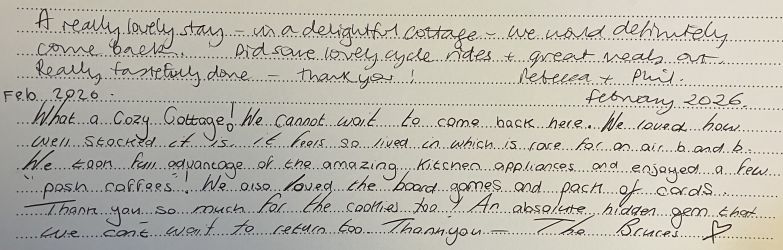 A really lovely stay - in a delightful cottage - we would definitely
come back. Did some lovely cycle rides + great meals out.
Really tastefully done - thank you! Rebecca + Phil.
Feb 2026. february 2026.
What a Cozy Cottage! We cannot wait to come back here. We loved how
well stocked it is. it feels so lived in which is rare for an air b and b.
We took full advantage of the amazing kitchen appliances and enjoyed a few
"posh coffees"! We also loved the board games and pack of cards.
Thank you so much for the cookies too! An absolute hidden gem that
we cant wait to return too. Thankyou - The Bruces ♡